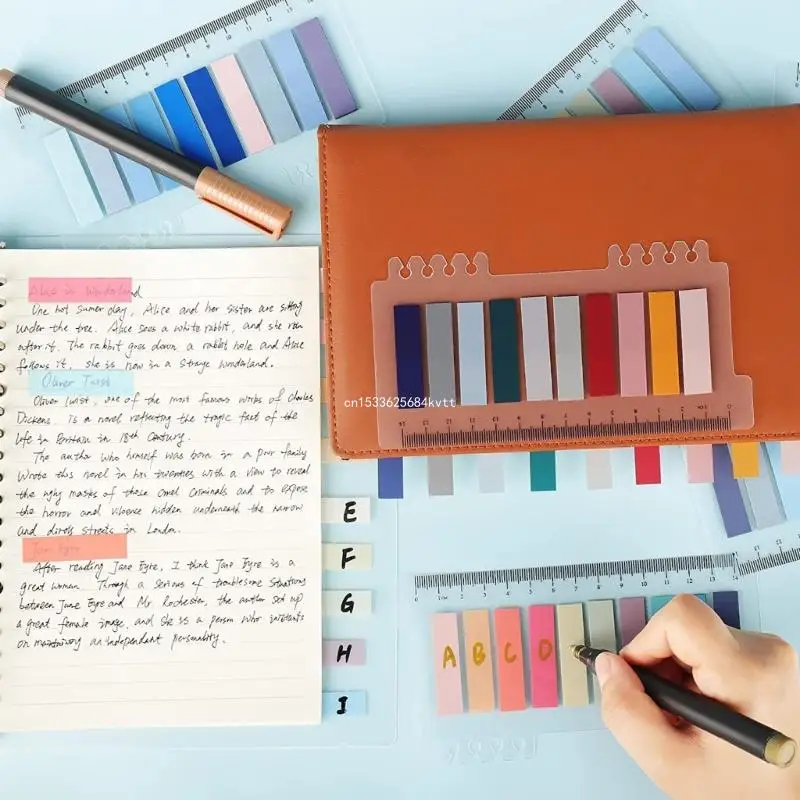 Alice in Wonderland
One hot sumer day, Alice and her sister are sitting
under the tree. Alice sees a white rabbit, and she run
after it. The rabbit goes down a rabbit hole and Alice
follows it, she is now in a strange wonderland.
Oliver Twist
Oliver Twist, one of the most famous works of Charles
Dickens, Is a novel reflecting the tragic fact of the
life in Britain in 18th Century.
The author who himself was born in a poor family
Wrote this novel in his twenties with a view to reveal
the ugly masks of these cruel criminals and to expose
the horror and violence hidden underneath the narrow
and dirty streets in London.
Jane Eyre
After reading Jane Eyre, I think Jane Eyre is a
great woman. Through a serious of troublesome situations
between Jane Eyre and Mr Rochester, the author set up
a great female image, and she is a person who insistants
on maintaining an independant personality.
E
F
G
H
I
cn1533625684kvtt
A B C D